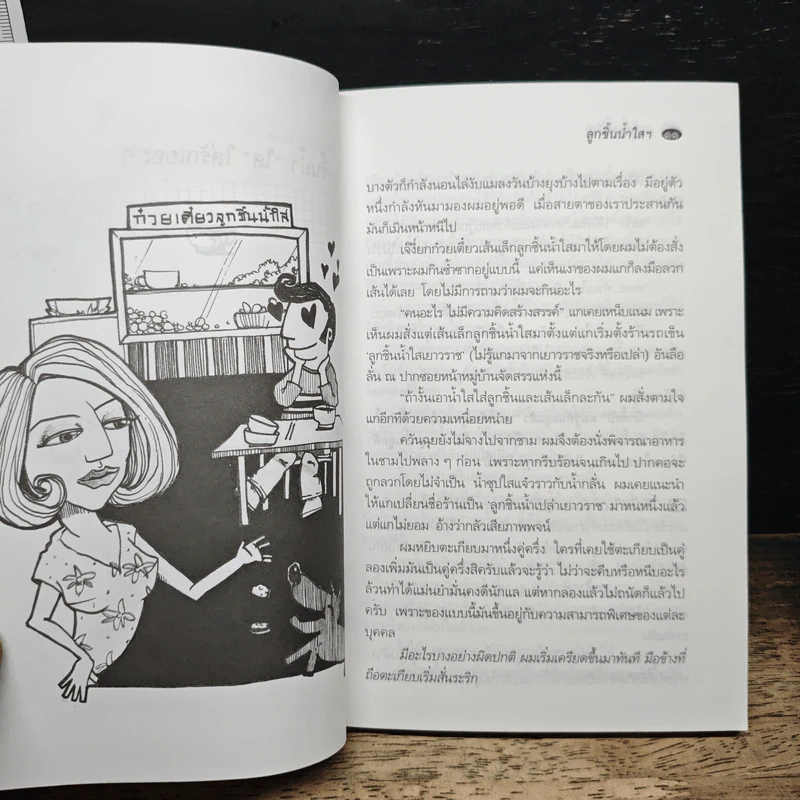 ก๋วยเตี๋ยวลูกชิ้นน้ำใส
ลูกชิ้นน้ำใสฯ ๑๑
บางตัวก็กำลังนอนไล่งับแมลงวันบ้างยุงบ้างไปตามเรื่อง มีอยู่ตัว
หนึ่งกำลังหันมามองผมอยู่พอดี เมื่อสายตาของเราประสานกัน
มันก็เมินหน้าหนีไป
เจ๊งี้ยกก๋วยเตี๋ยวเส้นเล็กลูกชิ้นน้ำใสมาให้โดยผมไม่ต้องสั่ง
เป็นเพราะผมกินซ้ำซากอยู่แบบนี้ แค่เห็นเงาของผมแกก็ลงมือลวก
เส้นได้เลย โดยไม่มีการถามว่าผมจะกินอะไร
“คนอะไร ไม่มีความคิดสร้างสรรค์” แกเคยเหน็บแนม เพราะ
เห็นผมสั่งแต่เส้นเล็กลูกชิ้นน้ำใสมาตั้งแต่แกเริ่มตั้งร้านรถเข็น
‘ลูกชิ้นน้ำใสเยาวราช’ (ไม่รู้แกมาจากเยาวราชจริงหรือเปล่า) อันลือ
ลั่น ณ ปากซอยหน้าหมู่บ้านจัดสรรแห่งนี้
“ถ้างั้นเอาน้ำใสใส่ลูกชิ้นและเส้นเล็กละกัน” ผมสั่งตามใจ
แกอีกทีด้วยความเหนื่อยหน่าย
ควันฉุยยังไม่จางไปจากชาม ผมจึงต้องนั่งพิจารณาอาหาร
ในชามไปพลาง ๆ ก่อน เพราะหากรีบร้อนจนเกินไป ปากคอจะ
ถูกลวกโดยไม่จำเป็น น้ำซุปใสแจ๋วราวกับน้ำกลั่น ผมเคยแนะนำ
ให้แกเปลี่ยนชื่อร้านเป็น ‘ลูกชิ้นน้ำเปล่าเยาวราช’ มาหนหนึ่งแล้ว
แต่แกไม่ยอม อ้างว่ากลัวเสียภาพพจน์
ผมหยิบตะเกียบมาหนึ่งคู่ครึ่ง ใครที่เคยใช้ตะเกียบเป็นคู่
ลองเพิ่มมันเป็นคู่ครึ่งสิครับแล้วจะรู้ว่า ไม่ว่าจะคีบหรือหนีบอะไร
ล้วนทำได้แม่นยำมั่นคงดีนักแล แต่หากลองแล้วไม่ถนัดก็แล้วไป
ครับ เพราะของแบบนี้มันขึ้นอยู่กับความสามารถพิเศษของแต่ละ
บุคคล
มีอะไรบางอย่างผิดปกติ ผมเริ่มเครียดขึ้นมาทันที มือข้างที่
ถือตะเกียบเริ่มสั่นระริก